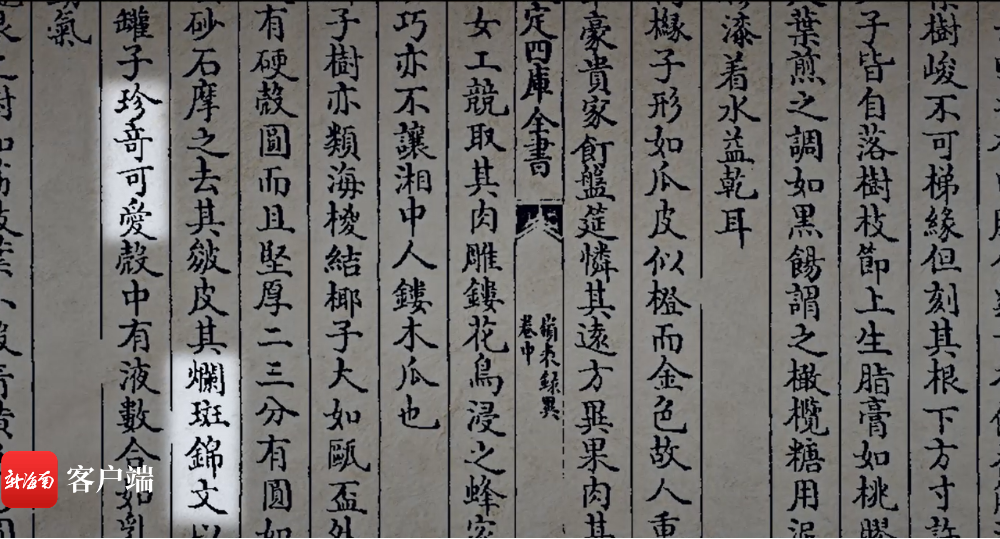 樹峻不可梯緣但刻其根下方寸許
子皆自落樹枝節上生脂膏如桃膠
葉煎之調如黑餳謂之橄欖糖用泥
漆着水益乾耳
櫞子形如瓜皮似橙而金色故人重
豪貴家飣盤筵憐其遠方異果肉其
定四庫全書
嶺表錄異
卷中
女工競取其肉雕鏤花鳥浸之蜂蜜
巧亦不讓湘中人鏤木瓜也
子樹亦類海椶結椰子大如甌盃外
有硬殻圓而且堅厚二三分有圓如
砂石摩之去其皴皮其爛斑錦文以
罐子珍竒可愛殻中有液數合如乳
氣
新海南
客户端